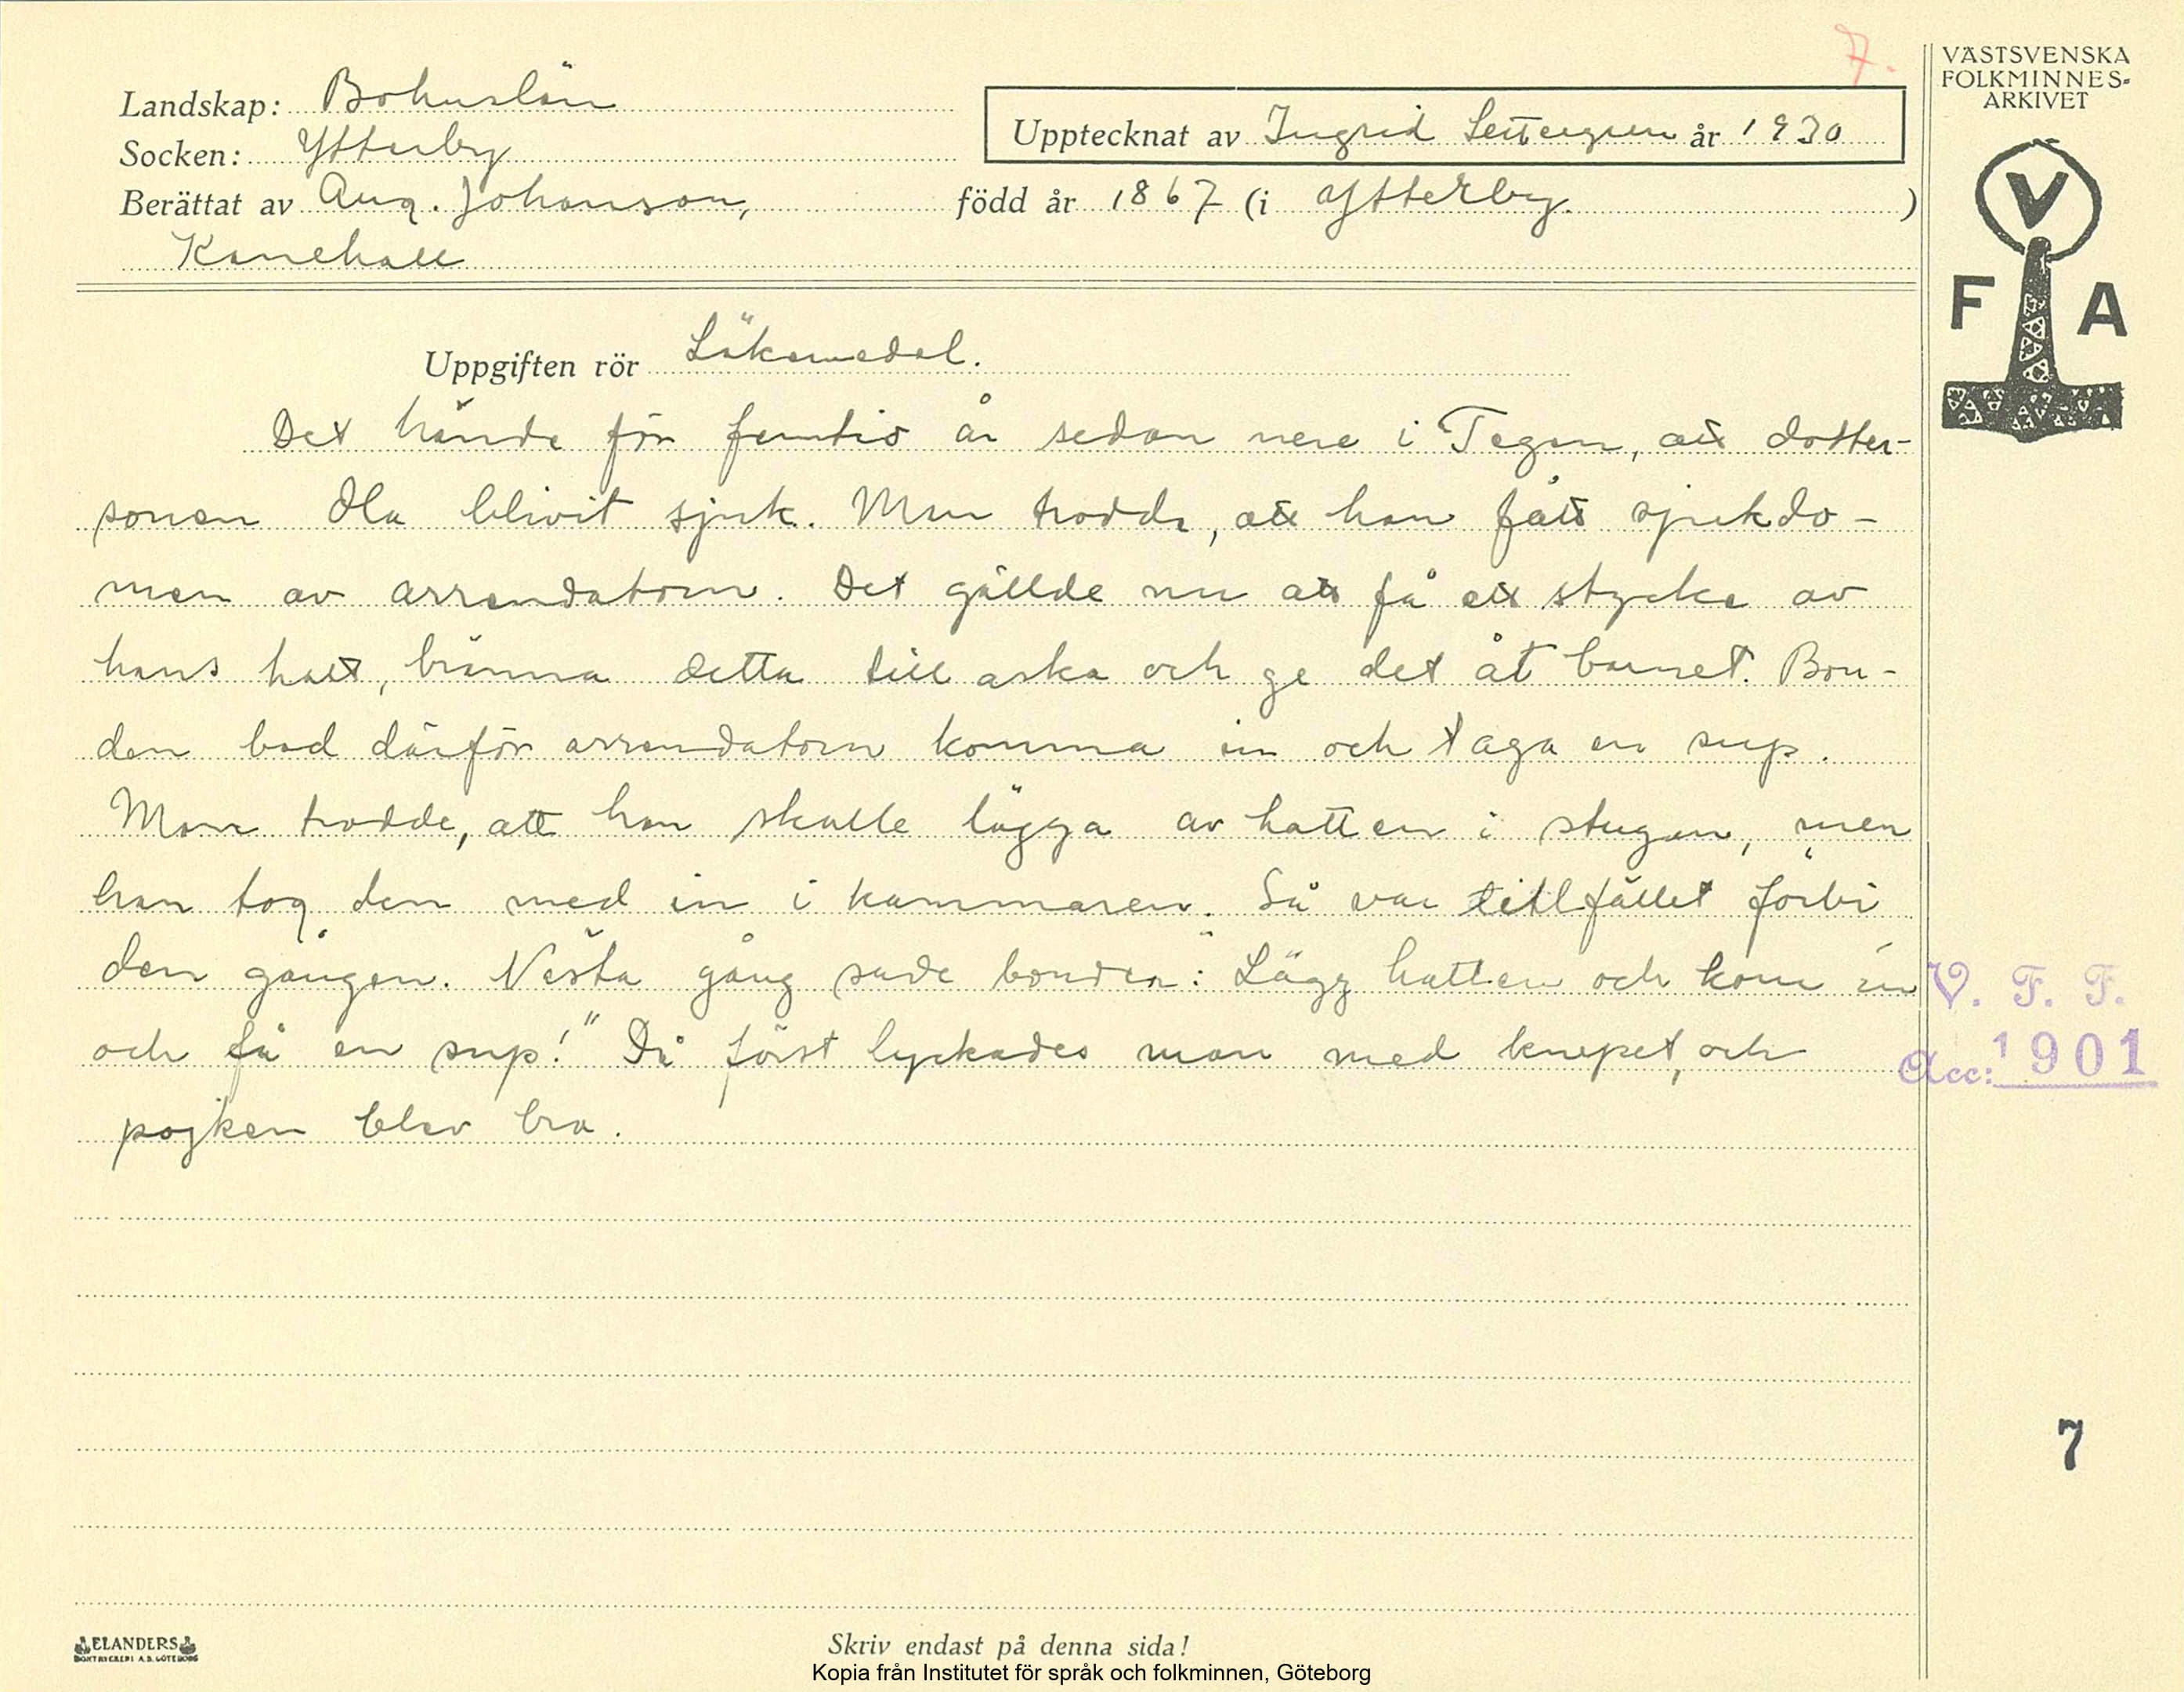 7.
VÄSTSVENSKA
FOLKMINNES-
ARKIVET
Landskap: Bohuslän
Upptecknat av Ingrid Settergren år 1930
Socken: Ytterby
Berättat av Aug. Johanson, född år 1867 (i Ytterby. )
Kanehall
V
F A
Uppgiften rör Läkemedel.
Det hände för femtio år sedan nere i Tegen, att dotter-
sonen Ola blivit sjuk. Man trodde, att han fått sjukdo-
men av arrendatorn. Det gällde nu att få ett stycke av
hans hatt, bränna detta till aska och ge det åt barnet. Bon-
den bad därför arrendatorn komma in och taga en sup.
Man trodde, att han skulle lägga av hatten i stugan, men
han tog den med in i kammaren. Så var tillfället förbi
den gången. Nästa gång sade bonden: "Lägg hatten och kom in
och få en sup!" Då först lyckades man med knepet, och
pojken blev bra.
V. F. F.
Acc: 1901
7
ELANDERS
BOKTRYCKERI A.B. GÖTEBORG
Skriv endast på denna sida!
Kopia från Institutet för språk och folkminnen, Göteborg